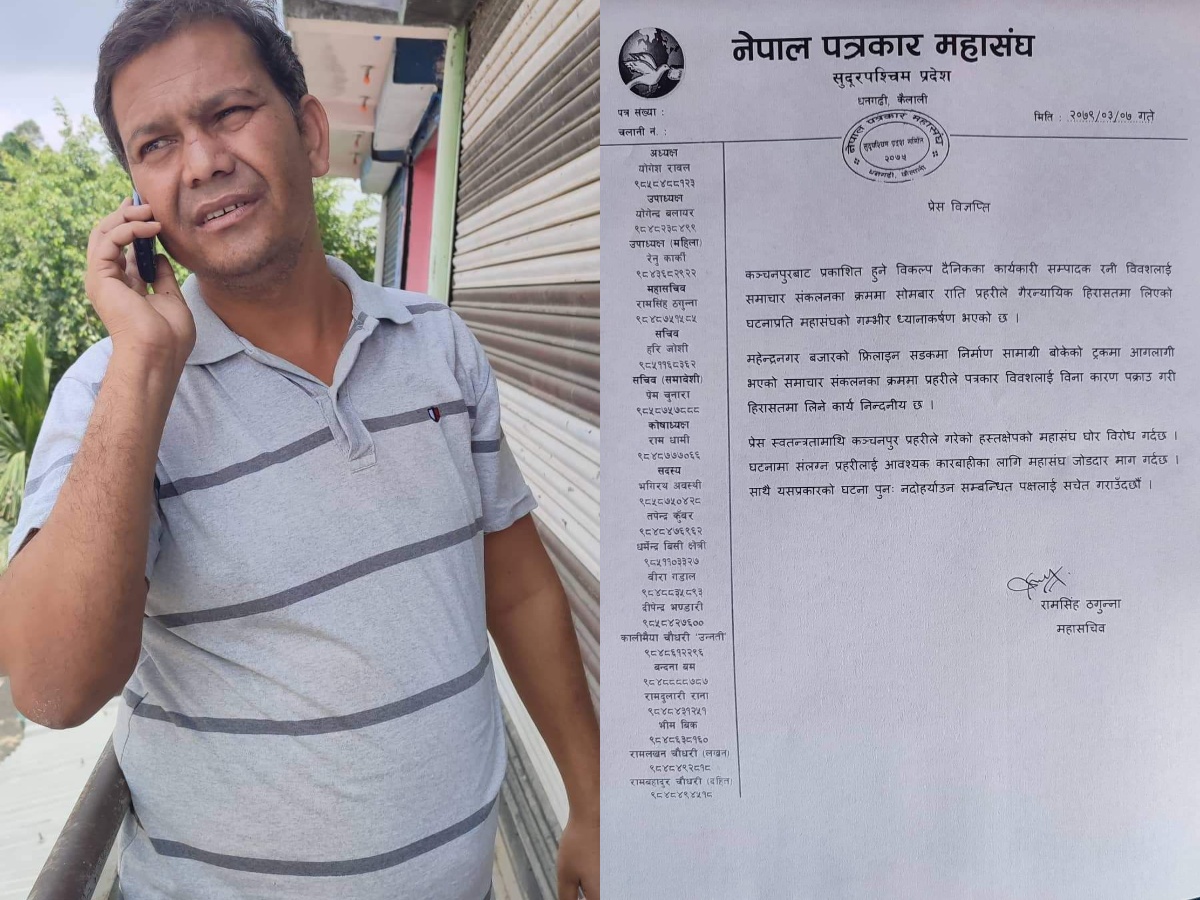 नेपाल पत्रकार महासंघ
सुदूरपश्चिम प्रदेश
धनगढी, कैलाली
पत्र संख्या :
चलानी नं. :
मिति : २०७९/०३/०७ गते
नेपाल पत्रकार महासंघ
सुदूरपश्चिम प्रदेश
२०७५
धनगढी, कैलाली
अध्यक्ष
योगेश रावल
९८५८४८८१२३
उपाध्यक्ष
योगेन्द्र बलायर
९८४८२३८४९९
उपाध्यक्ष (महिला)
रेनु कार्की
९८४३६८२९२२
महासचिव
रामसिंह ठगुन्ना
९८४८७५१५८५
सचिव
हरि जोशी
९८५११६८३६२
सचिव (समावेशी)
प्रेम चुनारा
९८५८७५७८८८
कोषाध्यक्ष
राम धामी
९८४८७७७०६६
सदस्य
भगिरथ अवस्थी
९८५८७५०४२८
तपेन्द्र कुँवर
९८४८४७६९६२
धर्मेन्द्र बिसी क्षेत्री
९८५११०३३२७
वीरा गडाल
९८४८८३५८९३
दीपेन्द्र भण्डारी
९८५८४२७६००
कालीमैया चौधरी 'उन्नती'
९८४८६१२२९६
बन्दना बम
९८४८८८८७८७
रामदुलारी राना
९८४८४३१२५१
भीम बिक
९८४८६३८१६०
रामलखन चौधरी (लखन)
९८४८४९२८१८
रामबहादुर चौधरी (दहित)
९८४८४९४५१८
प्रेस विज्ञप्ति
कञ्चनपुरबाट प्रकाशित हुने विकल्प दैनिकका कार्यकारी सम्पादक रनी विवशलाई
समाचार संकलनका क्रममा सोमबार राति प्रहरीले गैरन्यायिक हिरासतमा लिएको
घटनाप्रति महासंघको गम्भीर ध्यानाकर्षण भएको छ ।
महेन्द्रनगर बजारको फ्रिलाइन सडकमा निर्माण सामाग्री बोकेको ट्रकमा आगलागी
भएको समाचार संकलनका क्रममा प्रहरीले पत्रकार विवशलाई विना कारण पक्राउ गरी
हिरासतमा लिने कार्य निन्दनीय छ ।
प्रेस स्वतन्त्रतामाथि कञ्चनपुर प्रहरीले गरेको हस्तक्षेपको महासंघ घोर विरोध गर्दछ ।
घटनामा संलग्न प्रहरीलाई आवश्यक कारबाहीका लागि महासंघ जोडदार माग गर्दछ ।
साथै यसप्रकारको घटना पुनः नदोहर्याउन सम्बन्धित पक्षलाई सचेत गराउँदछौं ।
रामसिंह ठगुन्ना
महासचिव